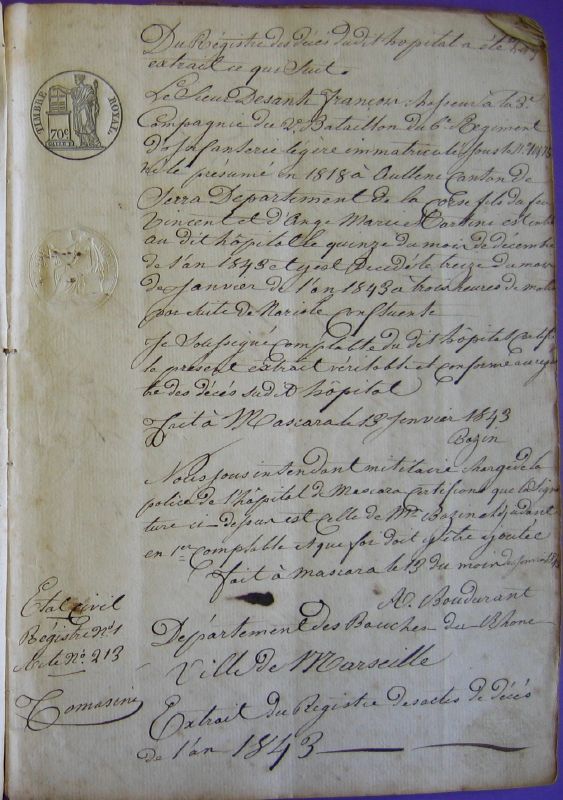 Du Régistre des décès dudit hopital a été
extrait ce qui suit.
TIMBRE ROYAL
70c
Le Sieur Desanti François chasseur à la 3e
Compagnie du 2e Bataillon du 6e Régiment
d'Infanterie légère immatriculé sous le n°
né le présumé en 1818 à Aullene Canton de
Serra Département de la Corse fils du feu
Vincent et d'Ange Marie Martine est entré
au dit hôpital le quinze du mois de décembre
de l'an 1843 et y est décédé le treize du mois
de Janvier de l'an 1843 à trois heures de
par suite de Variole confluente
Je soussigné comptable du dit hôpital certifie
le présent extrait véritable et conforme au régis
tre des décés sudit hôpital
fait à Mascara le 13 Janvier 1843
Bazin
Nous sous intendant militaire chargé de la
police de l'hôpital de Mascara certifions que la signa
ture ci-dessus est celle de Mr Bazin adjudant
en 1er comptable et que foi doit y être ajoutée
fait à Mascara le 13 du mois de Janvier 1843
A. Boudurant
Etat civil
Régistre n°1
Acte N° 213
Tomasini
Département des Bouches du Rhone
Ville de Marseille
Extrait du Registre des actes de décés
de l'an 1843